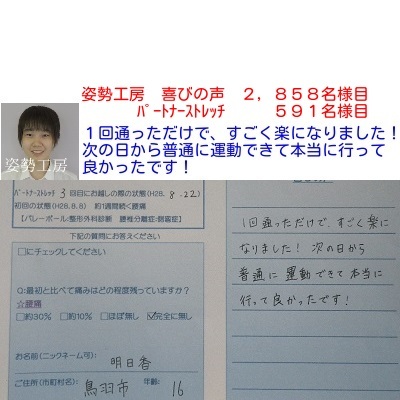 姿勢工房　喜びの声　２，８５８名様目
ﾊﾟｰﾄﾅｰｽﾄﾚｯﾁ　　５９１名様目
１回通っただけで、すごく楽になりました！
次の日から普通に運動できて本当に行って
良かったです！
姿勢工房
ﾊﾟｰﾄﾅｰｽﾄﾚｯﾁ 3 回目にお越しの際の状態(H28. 8.22)
初回の状態(H28.8.8) 約1週間続く腰痛
【バレーボール:整形外科診断 腰椎分離症:側窩症】
下記の質問にお答えください
□にチェックしてください
Q:最初と比べて痛みはどの程度残っていますか？
☆腰痛
□約30% □約10% □ほぼ無し ☑完全に無し
お名前(ニックネーム可): 明日香
ご住所(市町村名): 鳥羽市 年齢: 16
1回通っただけで、すごく楽に
なりました! 次の日から
普通に運動できて本当に
行って良かったです!